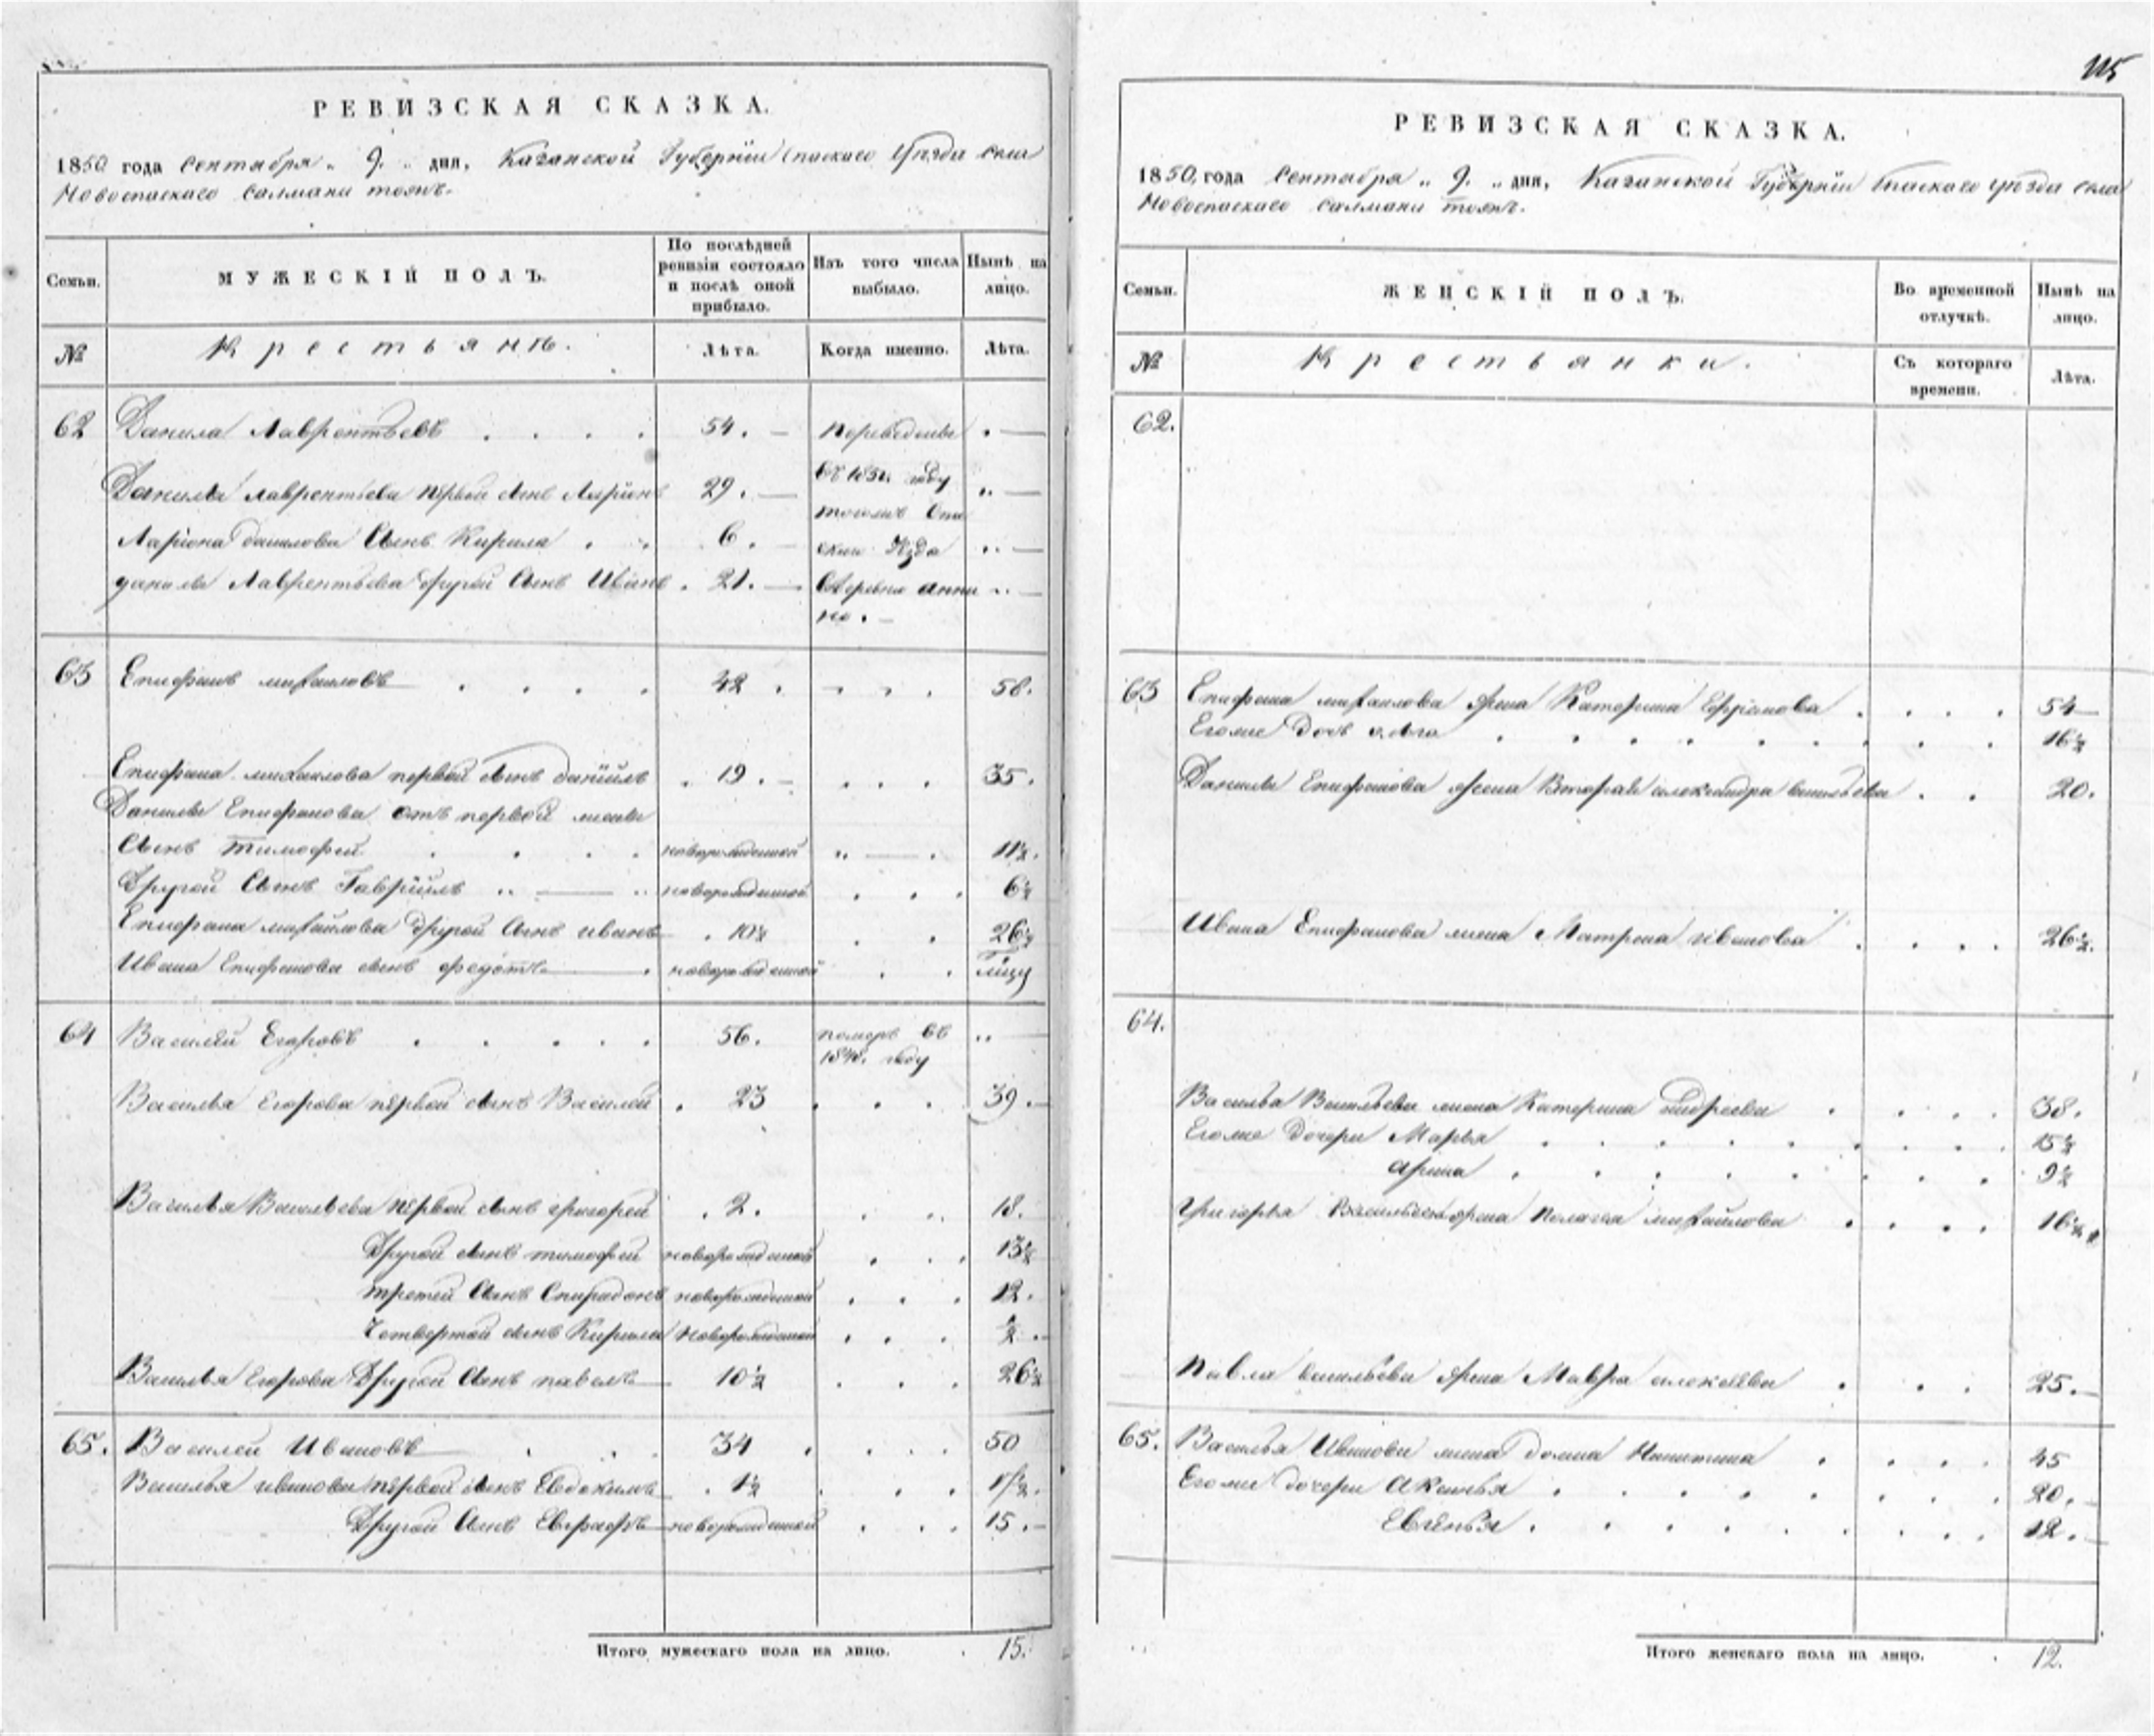 РЕВИЗСКАЯ СКАЗКА.
1850 года Сентября „ 9. „ дня, Казанской Губернiи Спаскаго Уѣзда села
Новоспаскаго Салмани тожъ.
Семьи.
МУЖЕСКIЙ ПОЛЪ.
По послѣдней ревизiи состояло и послѣ оной прибыло.
Изъ того числа выбыло.
Нынѣ на лицо.
№
Крестьянъ.
Лѣта.
Когда именно.
Лѣта.
62 Данила Лаврентьевъ 54. Переведены
Данила Лаврентьева первой сынъ Ларiонъ 29. въ 1851. году
Лариона данилова Сынъ Кирила 6.
данила Лаврентьева другой Сынъ Иванъ 21.
63 Епифанъ михаиловъ 42 58.
Епифана михаилова первой сынъ данiилъ 19. 35.
Данилы Епифанова отъ первой жены
Сынъ тимофей новорожденной 11½.
Другой Сынъ Гаврiилъ новорожденной 6½
Епифана михайлова другой Сынъ иванъ 10½ 26½
Ивана Епифанова сынъ федотъ новорожденной
64 Василей Егоровъ 56. померъ въ
1848. году
Василья Егорова первой сынъ Василей 23 39.
Василья Васильева первой сынъ григорей 2. 18.
Другой сынъ тимофей новорожденной 13½
третей Сынъ Спиридонъ новорожденной 12.
Четвертой сынъ Кирила новорожденной ½
Василья Егорова Другой Сынъ павелъ 10½ 26½
65. Василей Ивановъ 34 50
Василья иванова первой сынъ Евдокимъ 1½ 17½.
Другой Сынъ Евграфъ новорожденной 15.
Итого мужескаго пола на лицо. 15.
115
РЕВИЗСКАЯ СКАЗКА.
1850, года Сентября „ 9. „ дня, Казанской Губернiи Спаскаго уѣзда села
Новоспаскаго Салмани тожъ.
Семьи.
ЖЕНСКIЙ ПОЛЪ.
Во временной отлучкѣ.
Нынѣ на лицо.
№
Крестьянки.
Съ котораго времени.
Лѣта.
62.
63 Епифана михаилова жена Катерина Ефремова 54
Егоже дочь 16½
Данилы Епифанова жена Вторая александра васильева 20.
Ивана Епифанова жена Матрена иванова 26½.
64.
Василья Васильева жена Катерина Андреева 38.
Егоже дочери Марья 15½
Арина 9½
Григорья Васильева жена Пелагея михайлова 16½
Павла васильева жена Мавра алексеева 25.
65. Василья Иванова жена домна Никитина 45
Егоже дочери Аксинья 20.
Евгенья 12.
Итого женскаго пола на лицо. 12.